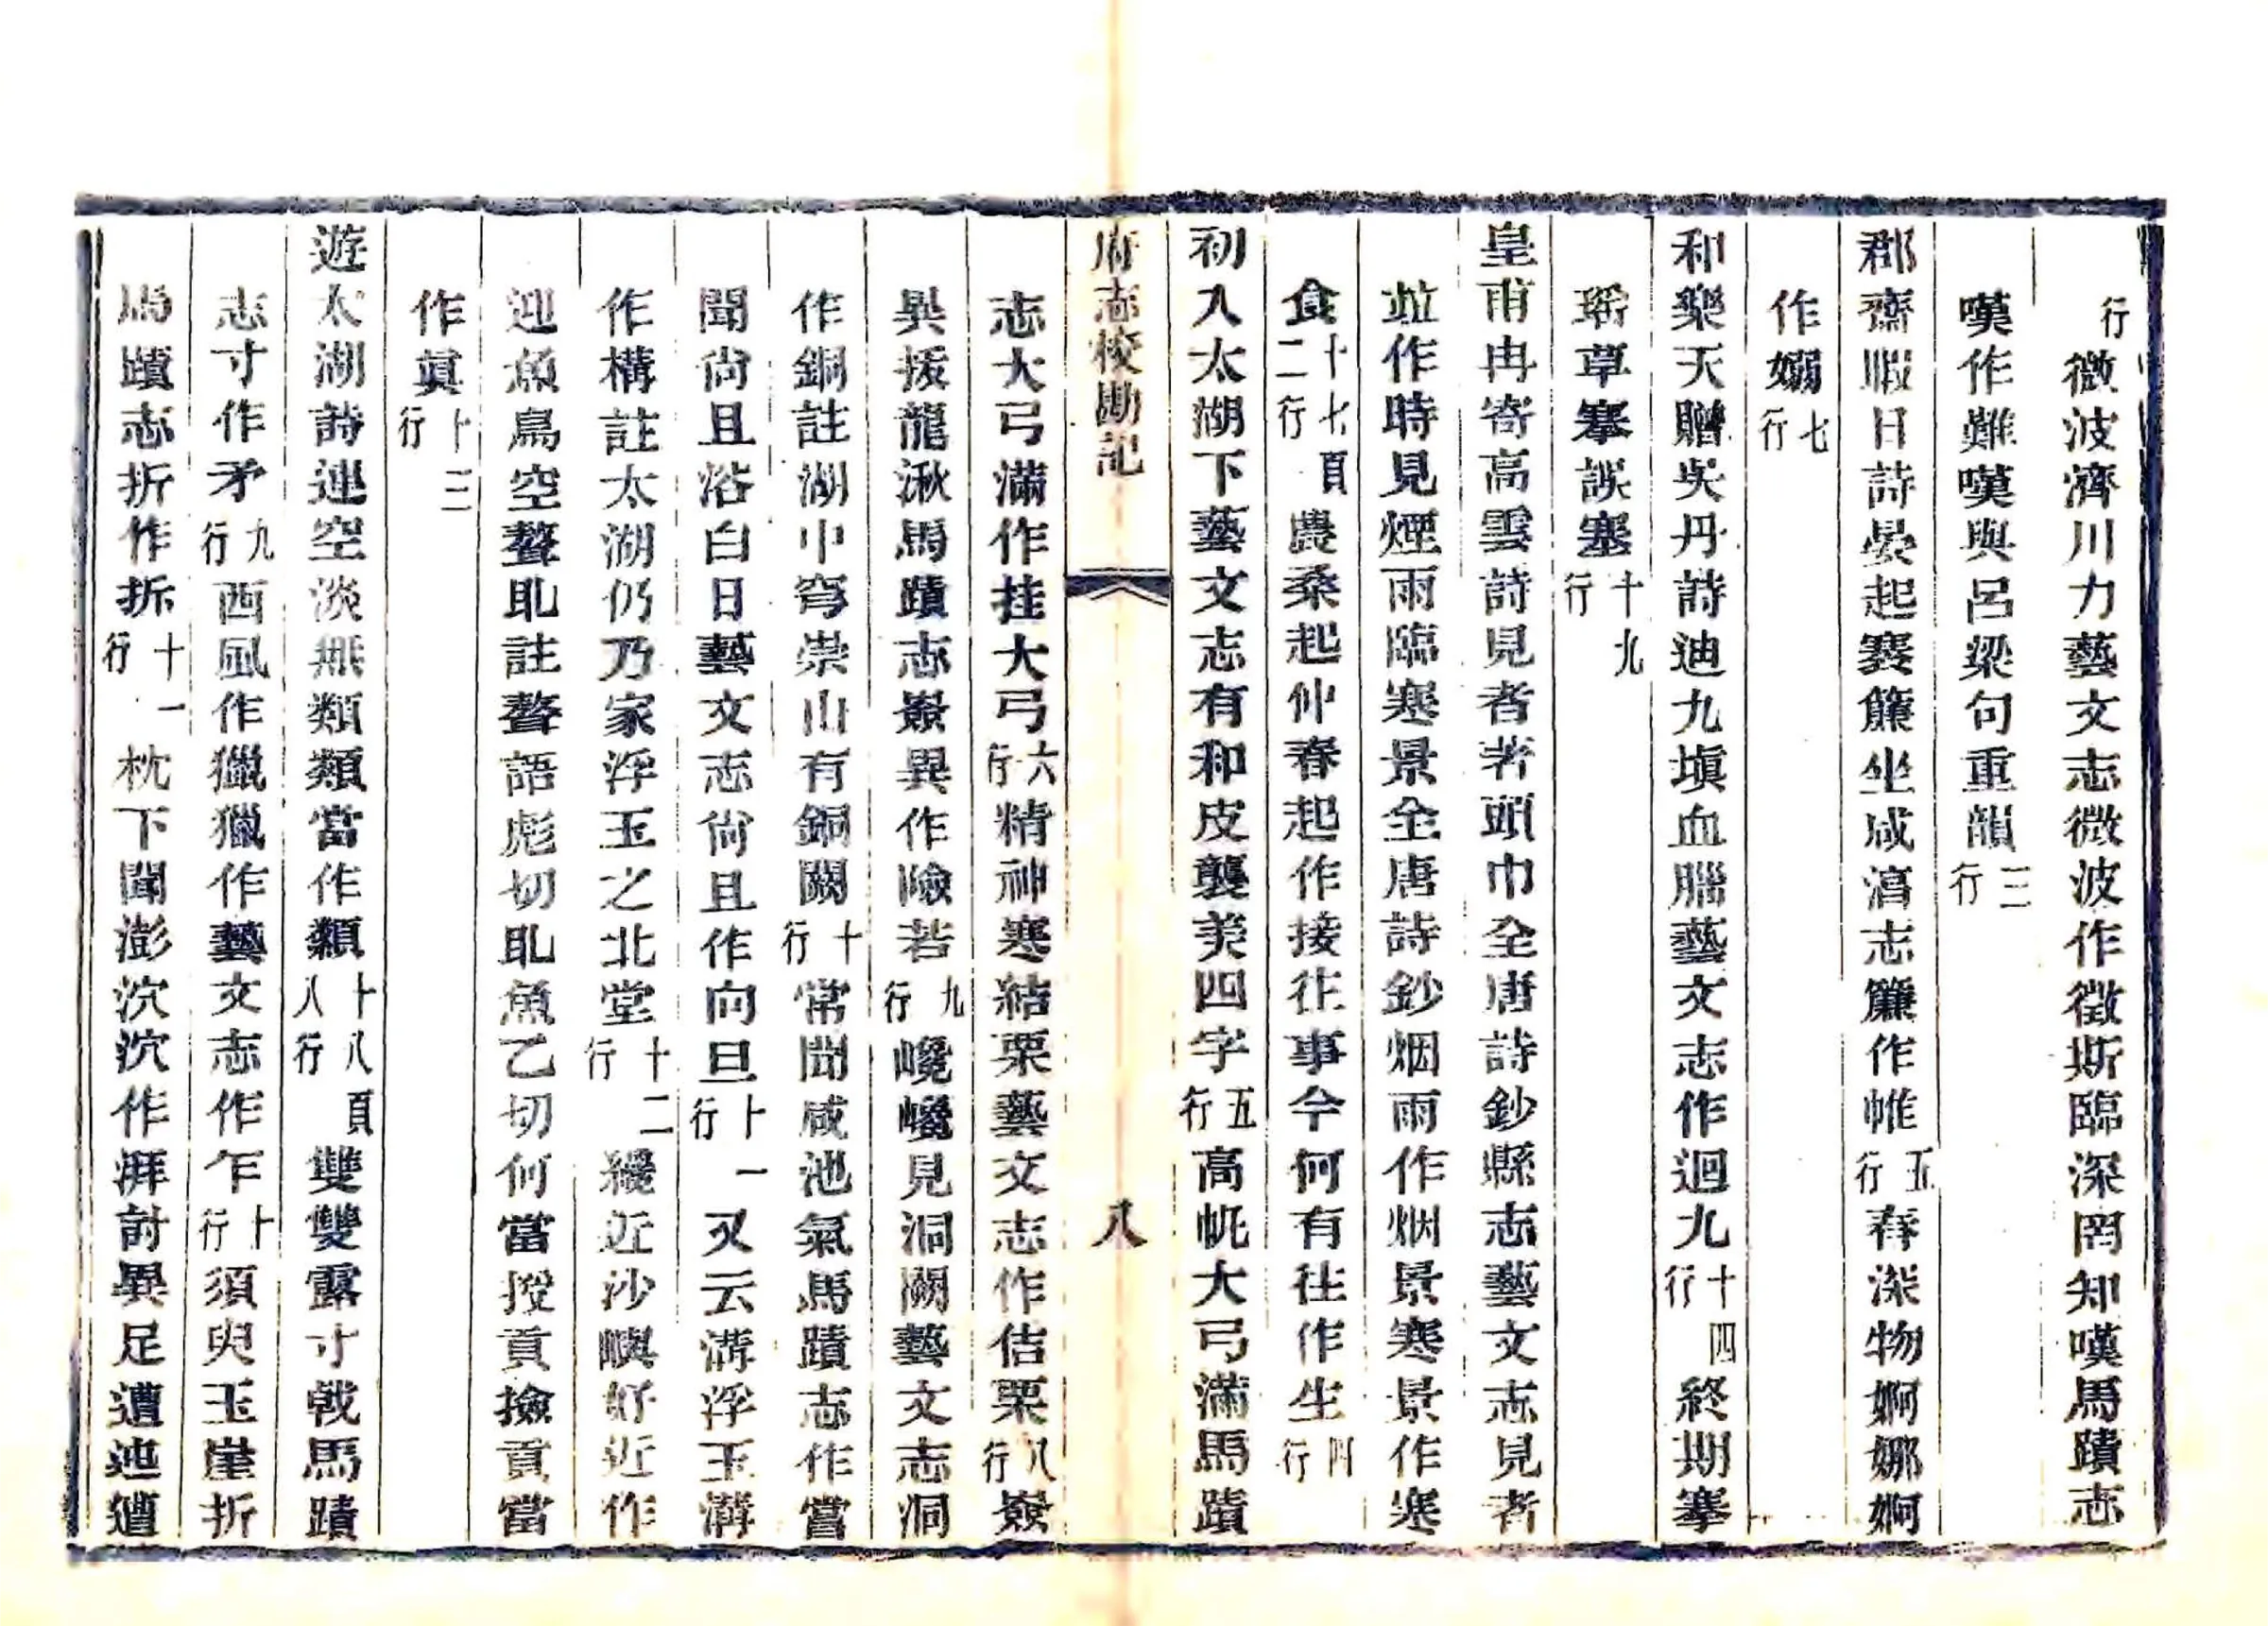 行微波濟川力藝文志微波作徵斯臨深罔知嘆馬蹟志
嘆作難嘆與呂梁句重韻三行
郡齋暇日詩晏起褰簾坐咸淯志簾作帷五行春深物婀娜婀
作嫋七行
和樂天贈吳丹詩迪九塡血腦藝文志作迴九十四行終期搴
瑤草搴誤塞十九行
皇甫冉寄高雲詩見者著頭巾全唐詩鈔縣志藝文志見者
並作時見煙雨臨寒景全唐詩鈔烟雨作烟景寒景作寒
食十七頁二行農桑起仲春起作接往事今何有往作生四行
初入太湖下藝文志有和皮襲美四字五行高帆大弓滿馬蹟
府志校勘記
八
志大弓滿作挂大弓六行精神寒結栗藝文志作佶栗八行嶽
異援龍湫馬蹟志嶽異作險若九行巉巉見洞闕藝文志洞
作銅註湖中穹崇山有銅闕十行常聞咸池氣馬蹟志作嘗
聞尙且浴白日藝文志尙且作向旦十一行又云溝浮玉溝
作構註太湖仍乃家浮玉之北堂十二行纔近沙嶼好近作
迎魚鳥空聱耴註聱語彪切耴魚乙切何當授眞撿眞當
作眞十三行
遊太湖詩連空淡無類類當作纇十八頁八行雙雙露寸戟馬蹟
志寸作矛九行西風作獵獵作藝文志作乍十行須臾玉崖折
馬蹟志折作拆十一行枕下聞澎泬泬作湃討異足遭迍遭